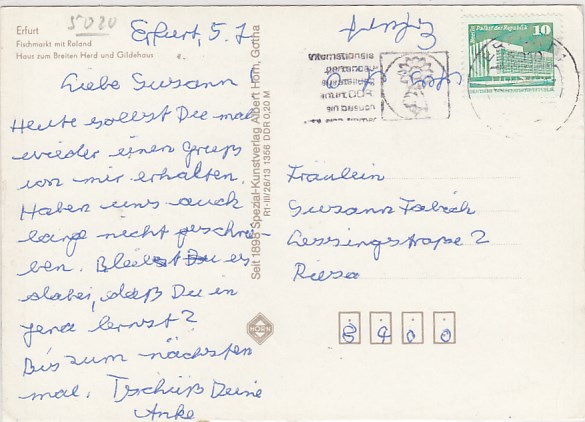 Erfurt
Fischmarkt mit Roland
Haus zum Breiten Herd und Gildehaus
5020
Erfurt, 5. 7
Liebe Susann!
Heute sollst Du mal
wieder einen Gruß
von mir erhalten.
Haben uns auch
lange nicht geschrie-
ben. Bleibt es
dabei, daß Du in
Jena lernst?
Bis zum nächsten
mal. Tschüß Deine
Anke
Seit 1898 Spezial-Kunstverlag Albert Horn, Gotha
R1-III/26/13 1356 DDR 0,20 M
HORN
Erfurt
Palast der Republik
10
Fräulein
Susann Fabich
Lessingstraße 2
Riesa
8400